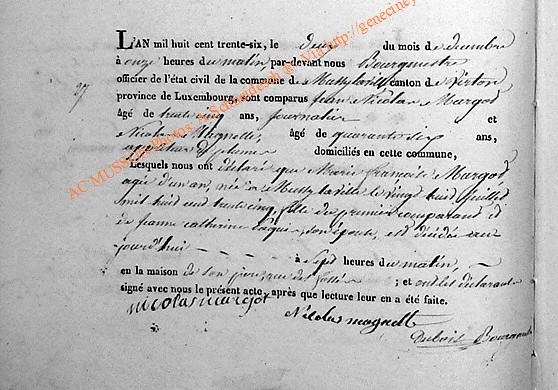 L'AN mil huit cent trente-six, le deux du mois de decembre
à onze heures du matin par-devant nous Bourgmestre
officier de l'état civil de la commune de Mussy la ville canton de Virton
27
province de Luxembourg, sont comparus Jean Nicolas Margot
âgé de trente cinq ans, journalier et
Nicolas Magnette, âgé de quarante six ans,
de plumes domiciliés en cette commune,
Lesquels nous ont déclaré que Marie françoise Margot
agée d'un an, née a Mussy la ville le vingt huit juillet
mil huit cent trente cinq, fille du premier comparant et
de jeanne catherine son épouse, est décédée au
jourd'hui à sept heures du matin,
en la maison de son pere, rue des fossés ; et ont les déclarants
signé avec nous le présent acte, après que lecture leur en a été faite.
nicolas margot
Nicolas magnette
Dubois Bourgmestre
AC-MUSSY Photos : Schmidesch ® Via http://geneciney